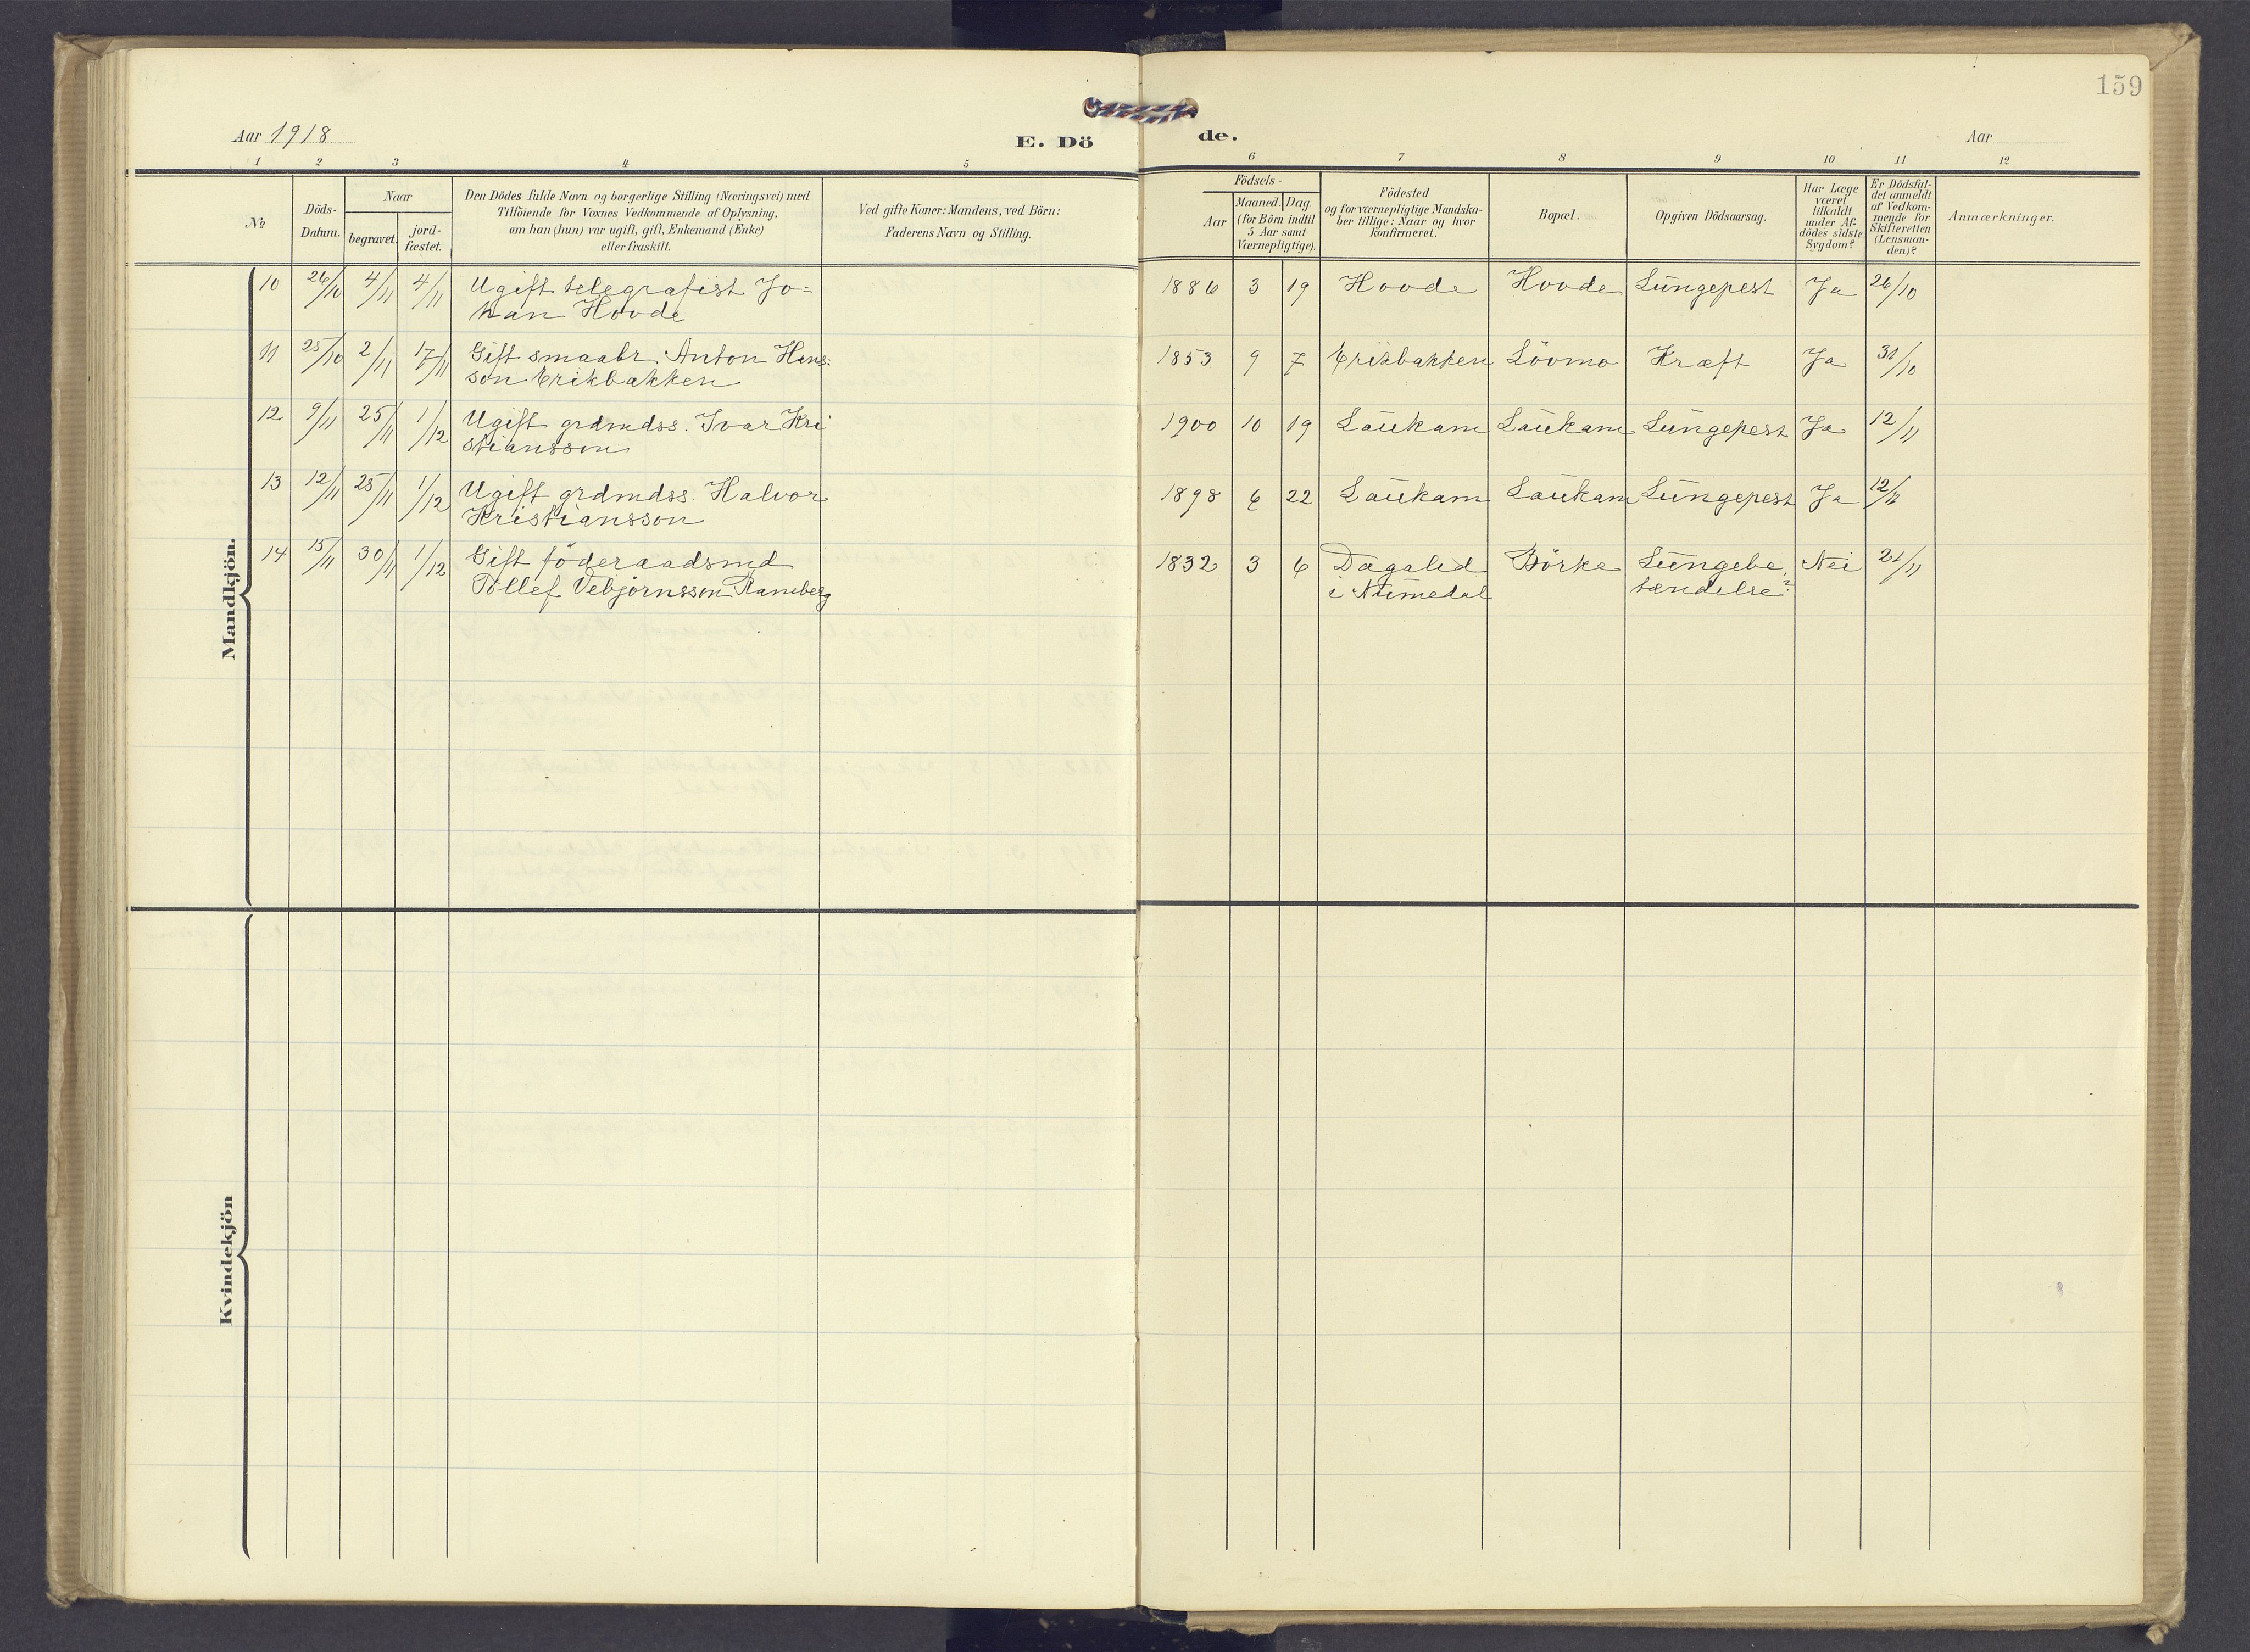 159
Aar 1918
E. Dö
de.
Aar
1 2 3 4 5 6 7 8 9 10 11 12
No
Döds-
Datum.
Naar
begravet.
jord-
fæstet.
Den Dödes fulde Navn og borgerlige Stilling (Næringsvei) med
Tilföiende for Voxnes Vedkommende af Oplysning,
om han (hun) var ugift, gift, Enkemand (Enke)
eller fraskilt.
Ved gifte Koner: Mandens, ved Börn:
Faderens Navn og Stilling.
Födsels-
Aar
Maaned. Dag.
(for Börn indtil
5 Aar samt
Værnepligtige).
Födested
og for værnepligtige Mandska-
ber tillige: Naar og hvor
konfirmeret.
Bopæl.
Opgiven Dödsaarsag.
Har Læge
været
tilkaldt
under Af-
dödes sidste
Sygdom?
Er Dödsfal-
det anmeldt
af Vedkom-
mende for
Skifteretten
(Lensman-
den)?
Anmærkninger.
Mandkjön.
10 26/10 4/11 4/11 Ugift telegrafist Jo=
han Hovde
1886 3 19 Hovde Hovde Lungepest Ja 26/10
11 25/10 2/11 17/11 Gift smaabr. Anton Hans:
son Erikbakken
1853 9 7 Erikbakken Lövmo Kræft Ja 31/10
12 9/11 25/11 1/12 Ugift grdmdss. Ivar Kri
stiansson
1900 10 19 Laukam Laukam Lungepest Ja 12/11
13 12/11 25/11 1/12 Ugift grdmdss. Halvor
Kristiansson
1898 6 22 Laukam Laukam Lungepest Ja 12/11
14 15/11 30/11 1/12 Gift föderaadsmd
Tollef Vebjörnsson Ramberg
1832 3 6 Dagalid Börke Lungebe Nei 21/11
i Numedal tændelse?
Kvindekjön